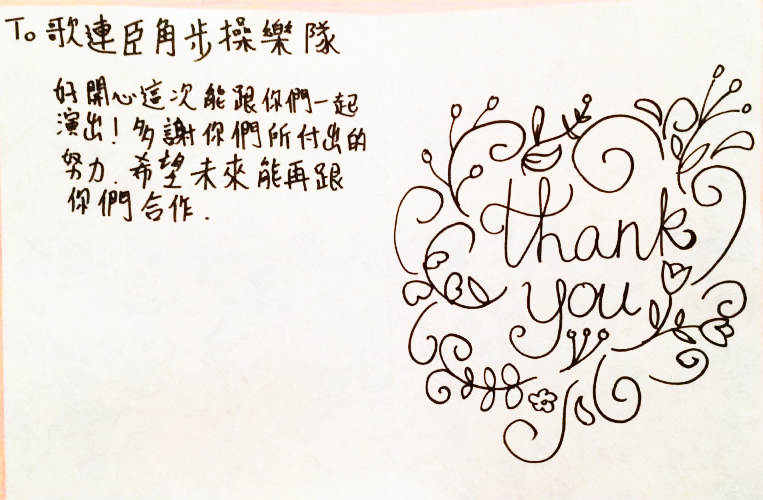 To 歌連臣角步操樂隊
好開心這次能跟你們一起
演出！多謝你們所付出的
努力.希望未來能再跟
你們合作.
thank
you